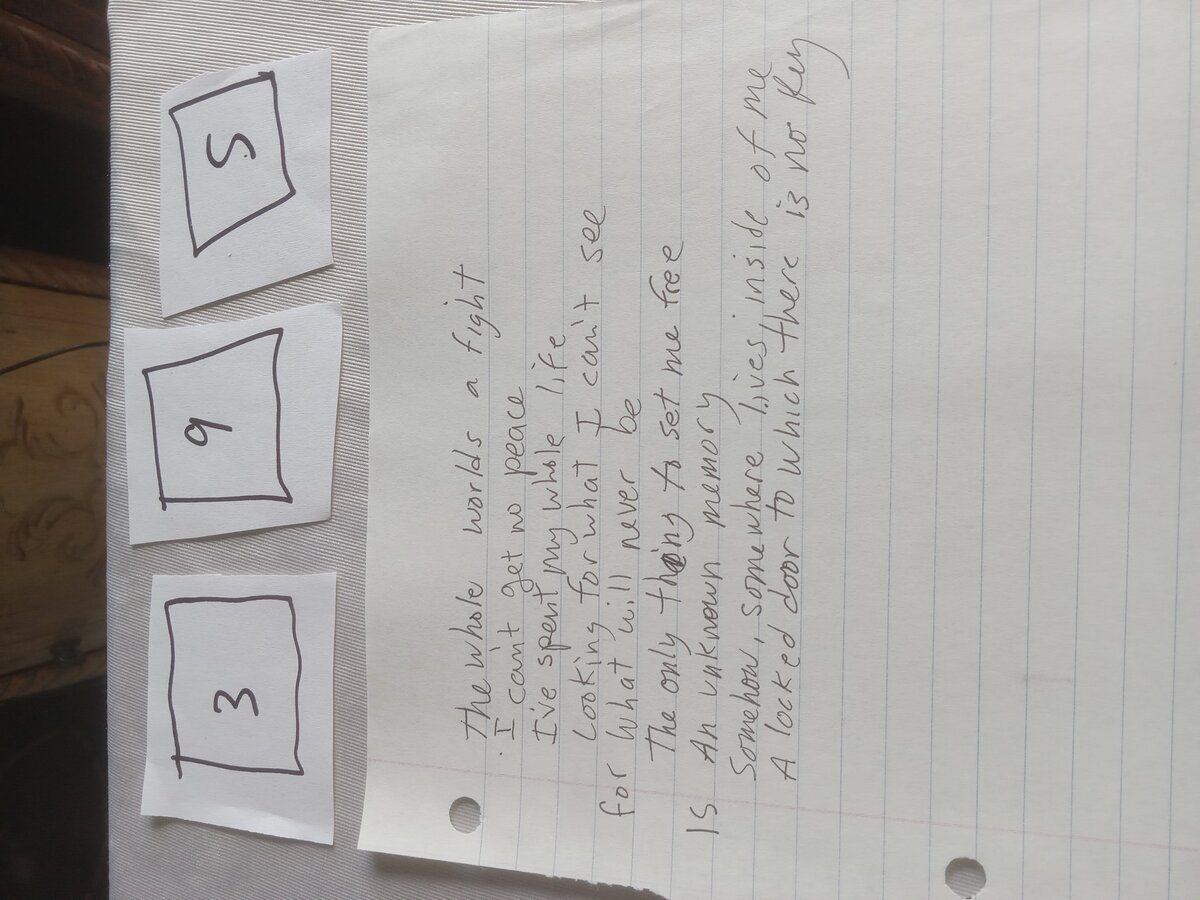 3 9 5
The whole worlds a fight
I can't get no peace
I've spent my whole life
Looking for what I can't see
for what will never be
The only thing to set me free
Is An unknown memory
Somehow, somewhere lives inside of me
A locked door to which there is no key